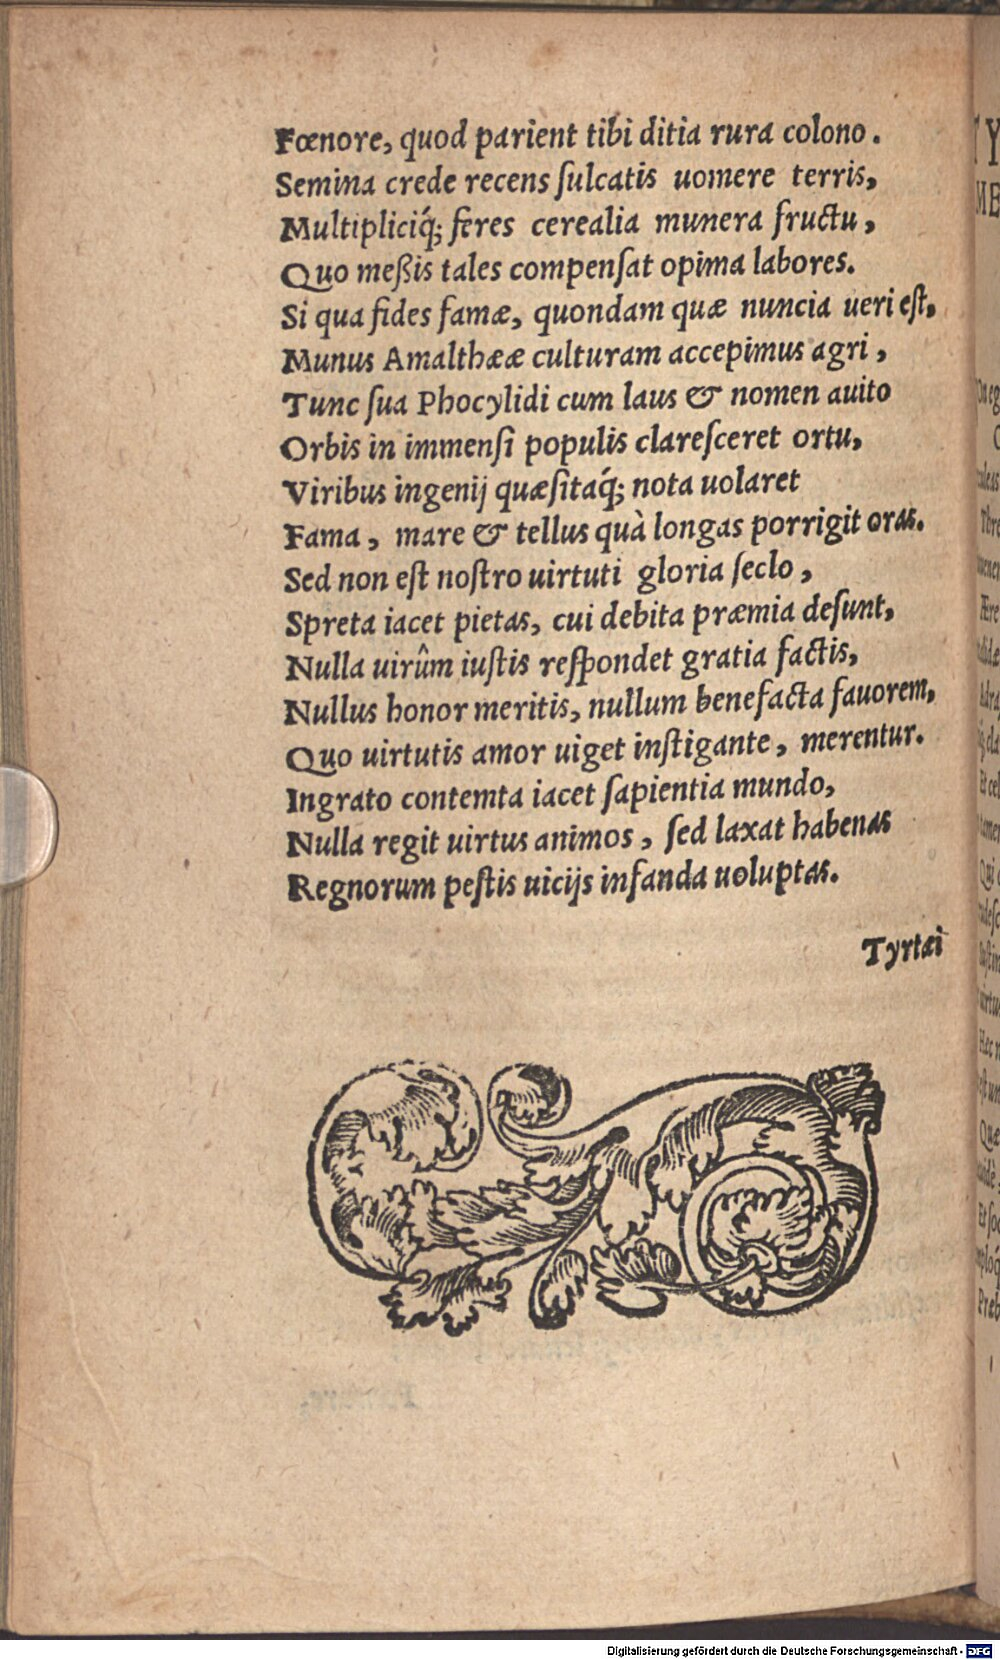 Fœnore, quod parient tibi ditia rura colono.
Semina crede recens ſulcatis uomere terris,
Multipliciq́; feres cerealia munera fructu,
Quo meßis tales compenſat opima labores.
Si qua fides famæ, quondam quæ nuncia ueri eſt,
Munus Amalthææ culturam accepimus agri,
Tunc ſua Phocylidi cum laus & nomen auito
Orbis in immenſi populis clareſceret ortu,
Viribus ingenij quæſitaq́; nota uolaret
Fama, mare & tellus quà longas porrigit oras.
Sed non eſt noſtro uirtuti gloria ſeclo,
Spreta iacet pietas, cui debita præmia deſunt,
Nulla uirûm iuſtis reſpondet gratia factis,
Nullus honor meritis, nullum benefacta fauorem,
Quo uirtutis amor uiget inſtigante, merentur.
Ingrato contemta iacet ſapientia mundo,
Nulla regit uirtus animos, ſed laxat habenas
Regnorum peſtis uicijs infanda uoluptas.
Tyrtæi
Digitalisierung gefördert durch die Deutsche Forschungsgemeinschaft - DFG